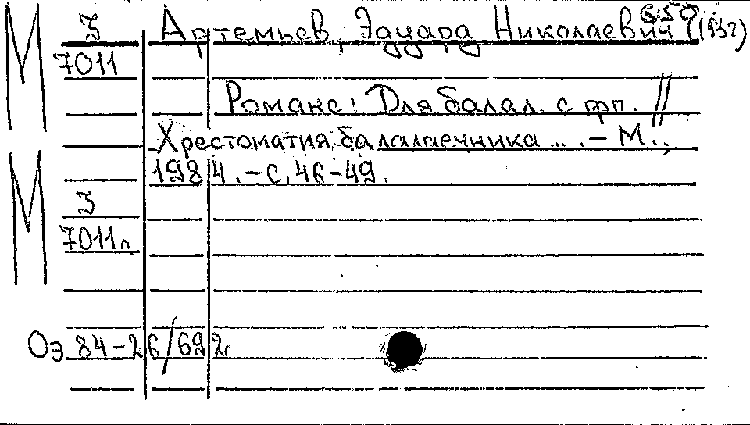 М З Артемьев, Эдуард Николаевич
7011
Романс: Для балал. с фп. //
Хрестоматия балалаечника ... . – М.,
1984. – С. 46-49.
М З
7011п
Оэ 84-26/692